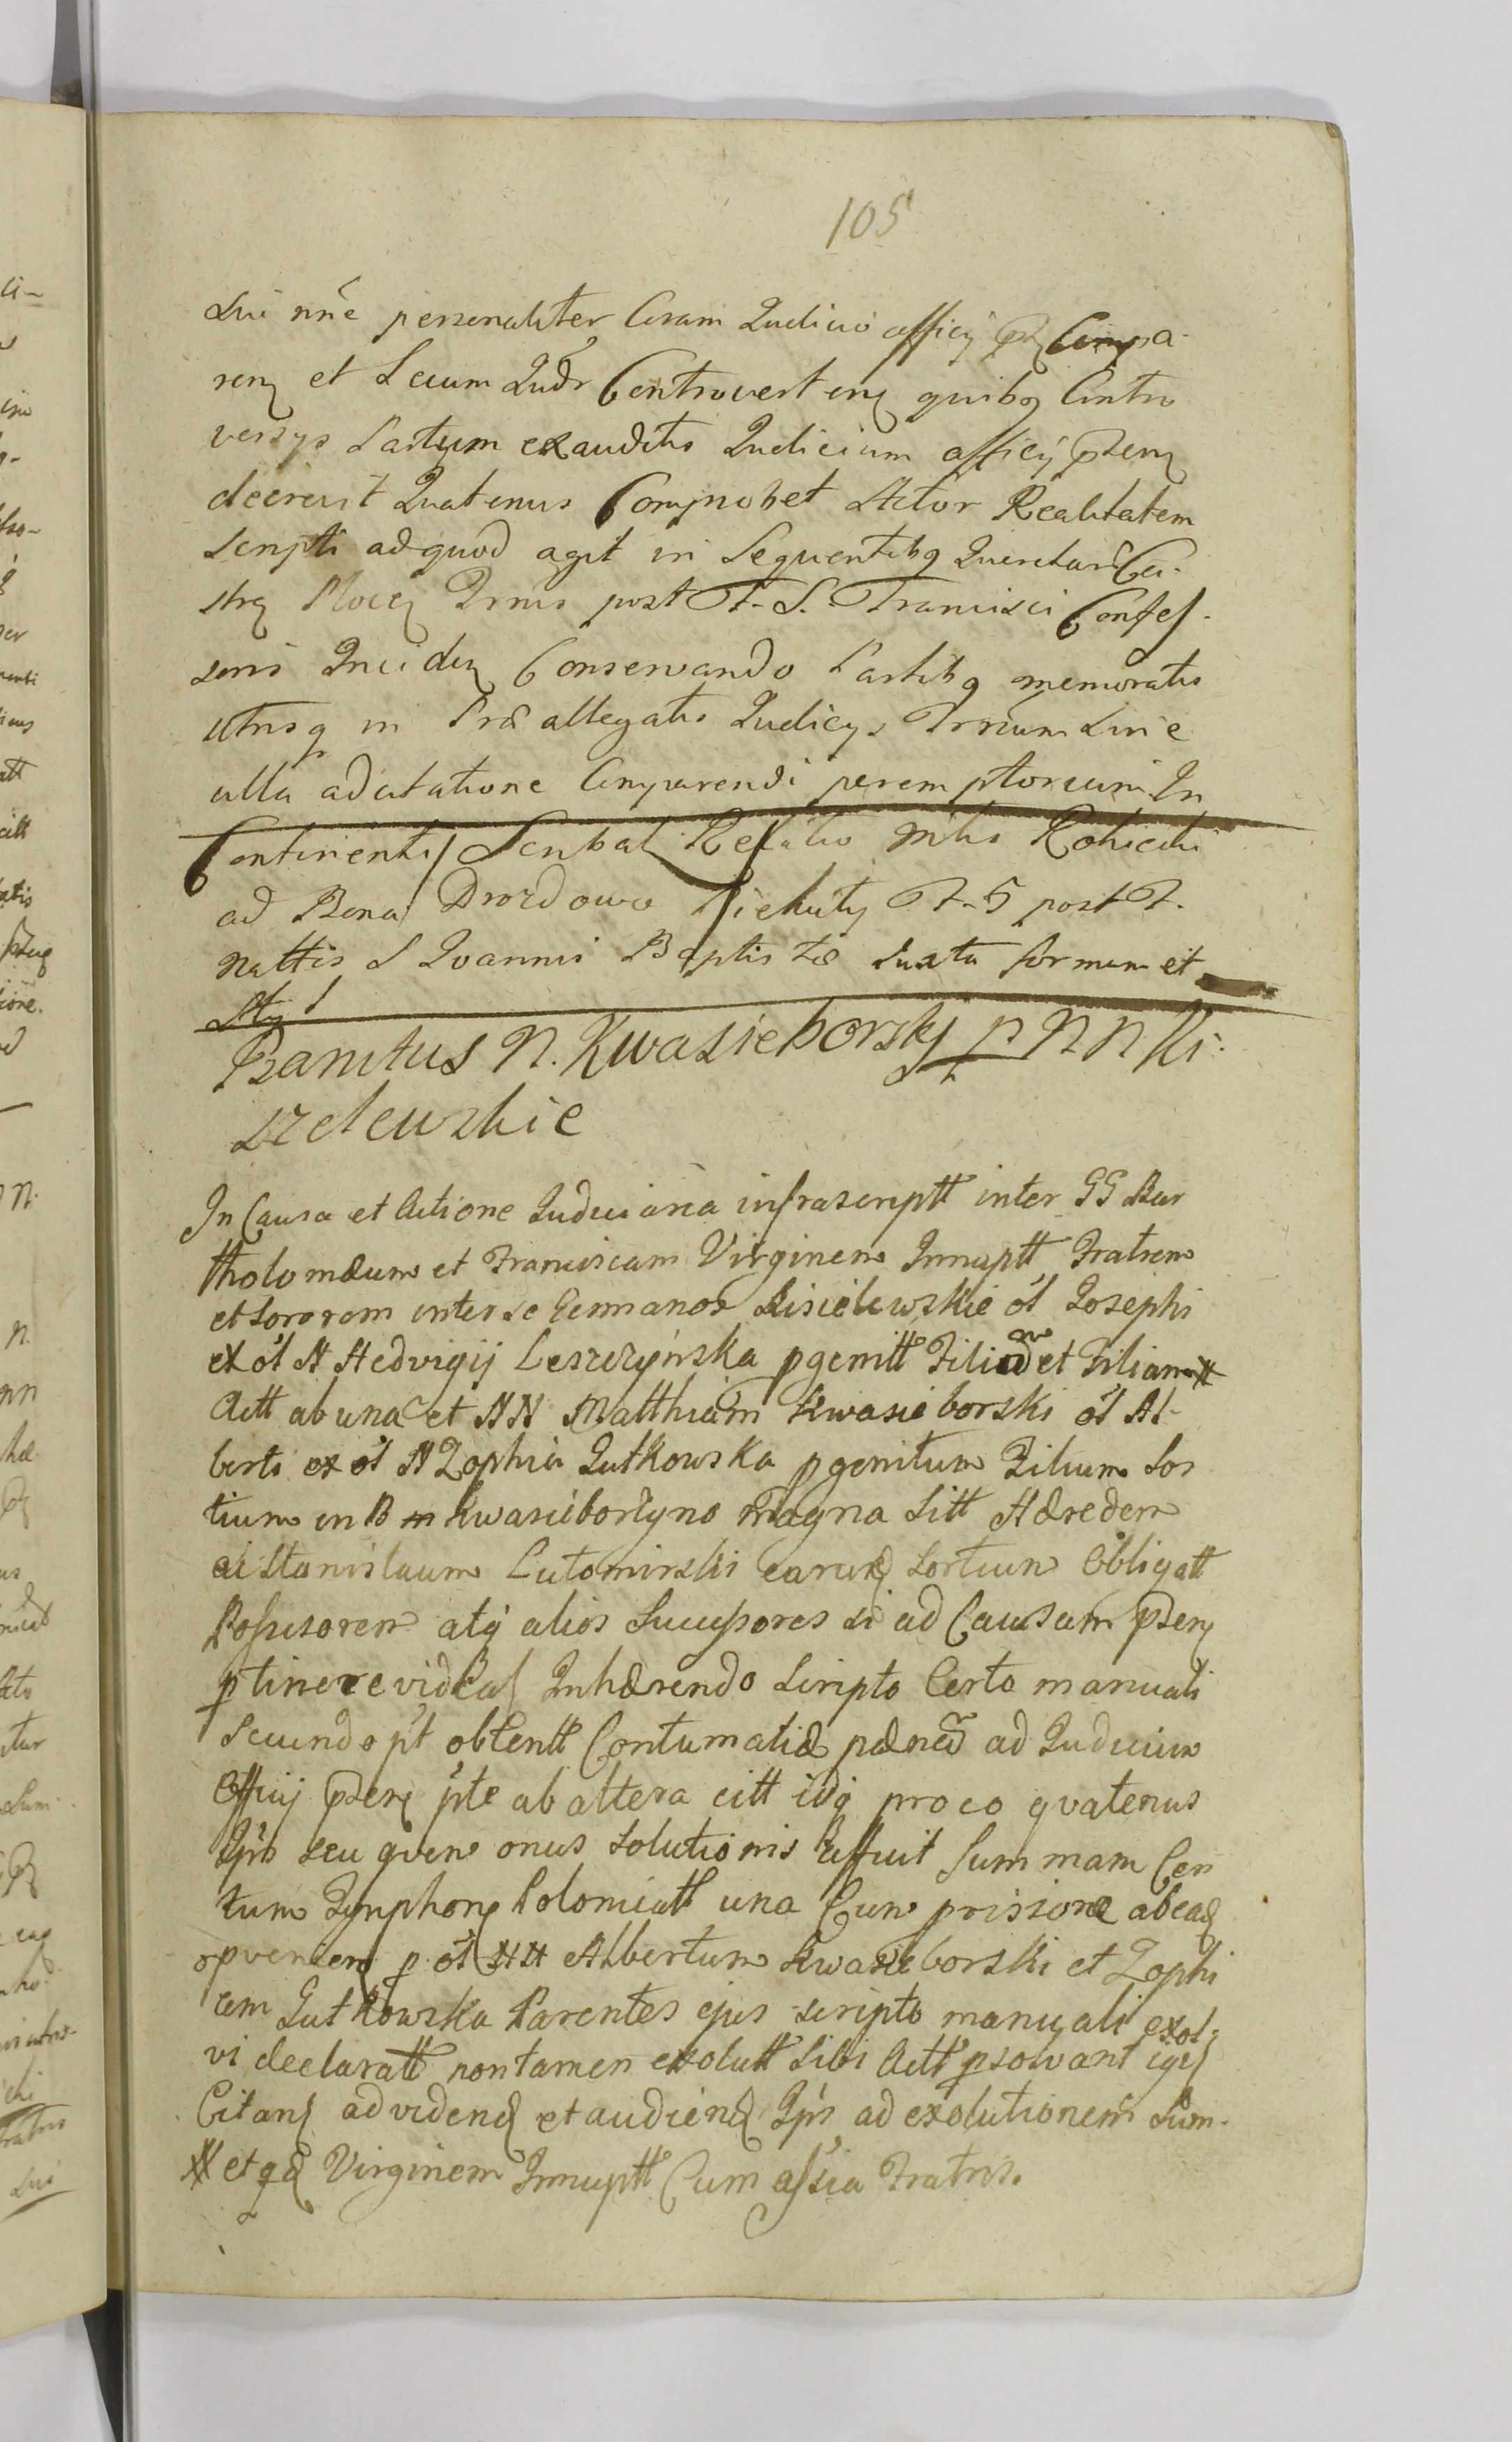 105
sui nne personaliter Coram Judicio officij Compa-
ren et Secum Judr Controverten quibq Contro
versys Partium exauditis Judicium officij pzens
decrevit Quatenus Comprobet Actor Realitatem
Scripti ad quod agit in Sequentibq Querelarum Ca-
stren Plocen Trmis post F. S. Francisci Confes-
soris Inciden Conservando Partibq memoratis
utrisq in Præallegatis Judicys Trnum Sine
ulla adcitatione Comparendi peremptorium In
Continenti Scribat Relatio Mtis Rohiecki
ad Bona Drozdowo Piekuty F. 5 post F.
Nattis S Joannis Baptistæ Juxta formam et
Sty
Banitus N. Kwasieborskj p N N Ki-
szelewskie
In Causa et Actione Judiciaria infrascriptt inter GG Bar
tholomæum et Franciscam Virginem Innuptt Fratrem
et Sororem inter se Germanos Kisielewskie ol Josephi
ex ol N Hedvigij Leszczyńska pgenitt Filium et Filiam #
Actt ab una et NN Matthiam Kwasieborski ol Al-
berti ex ol N Zophia Gutkowska pgenitum Filium Sor
tium in B Kwasieborzyno Magna Sitt Hæredem
ac Stanislaum Lutomirski earund Sortium Obligatt
Possesorem atq alios Successores si ad Causam pzen
ptinere videas Inhærendo Scripto Certo manuali
Secundo pt obtentt Contumatiæ pænea ad Judicium
Officij pzens pte ab altera citt idq pro eo qvatenus
Ipsi seu qvem onus Solutionis affuit Summam Cen
tum Tymphon Polonicatt una Cum prisione ab ead
opvenien p ol NN Albertum Kwasieborski et Zophi
am Gutkowska Parentes ejus scripto manuali exol-
vi declaratt non tamen exolutt Sibi Actt psolvant
Citans ad videnð et audienð Ipsi ad exolutionem Sum-
# et qð Virginem Innuptt Cum assia Fratris.